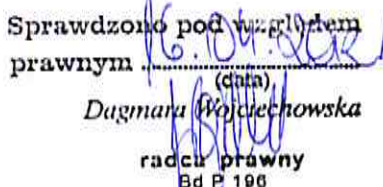 Sprawdzono pod względem
prawnym
16.04.2012
(data)
Dagmara Wojciechowska
radca prawny
Bd P 196